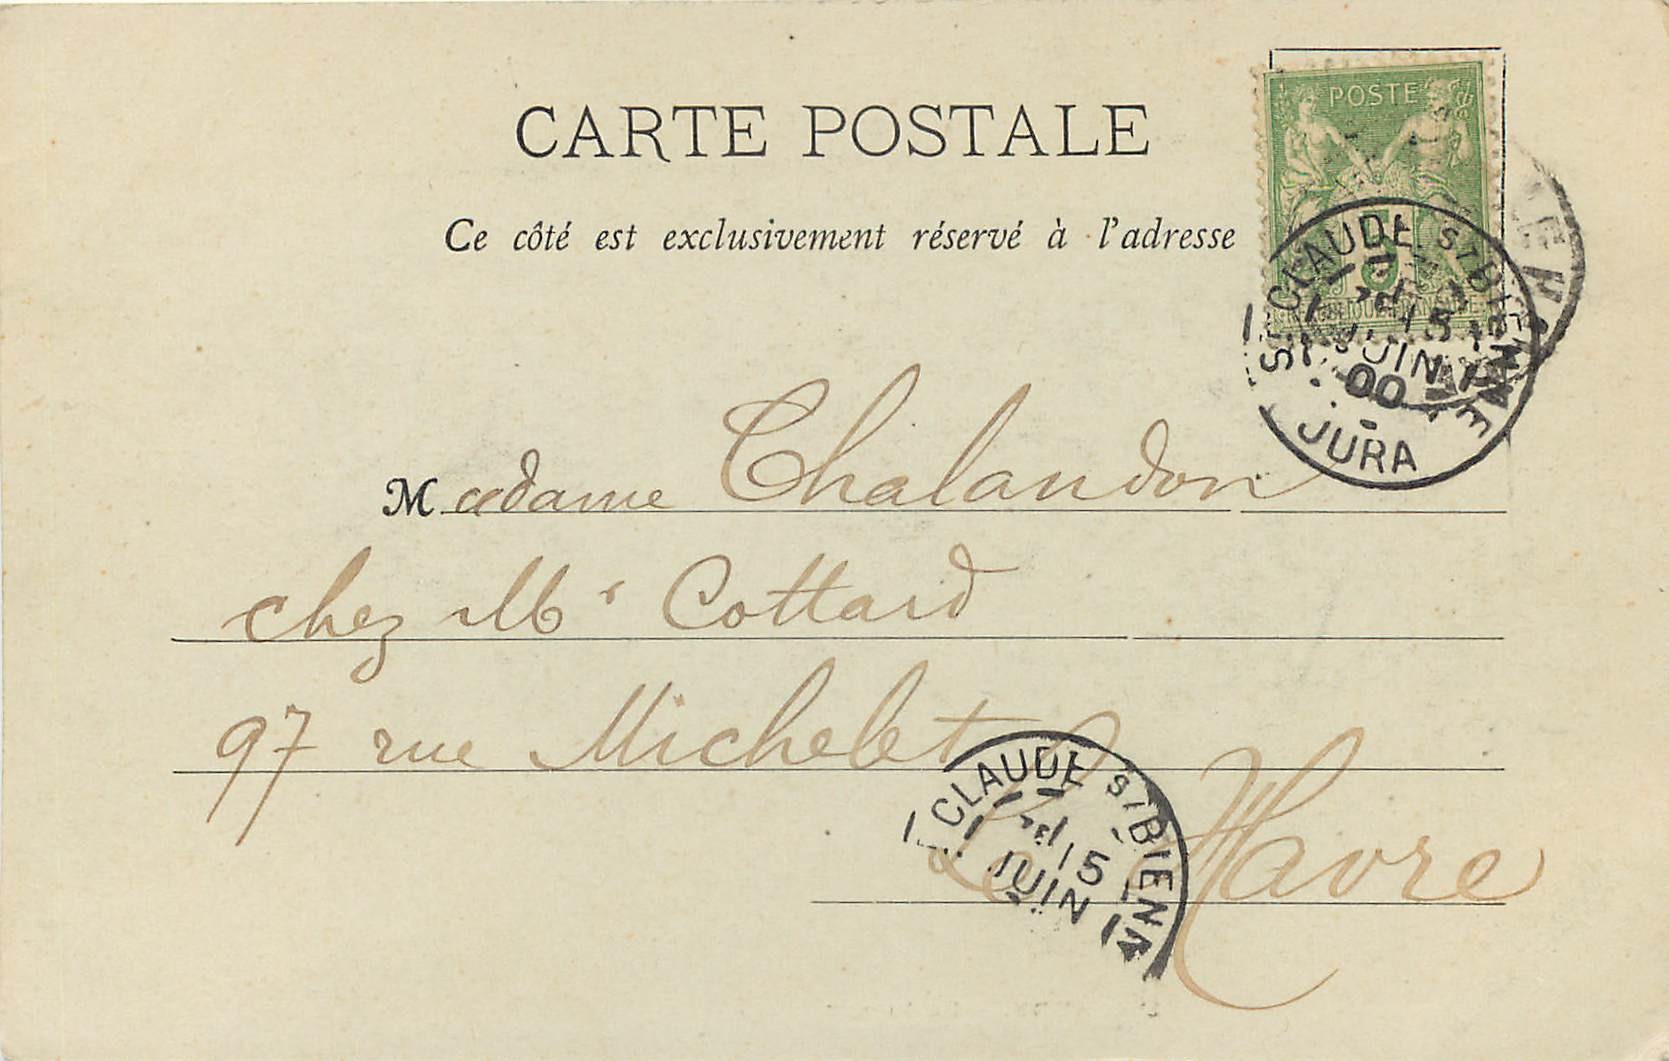 CARTE POSTALE
POSTE
Ce côté est exclusivement réservé à l'adresse
5
ST CLAUDE ST BIENNE
15
JUIN
00
JURA
Madame Chalandon
chez Mr Cottard
97 rue Michelet
Le Havre
CLAUDE ST BIENN
15
JUIN